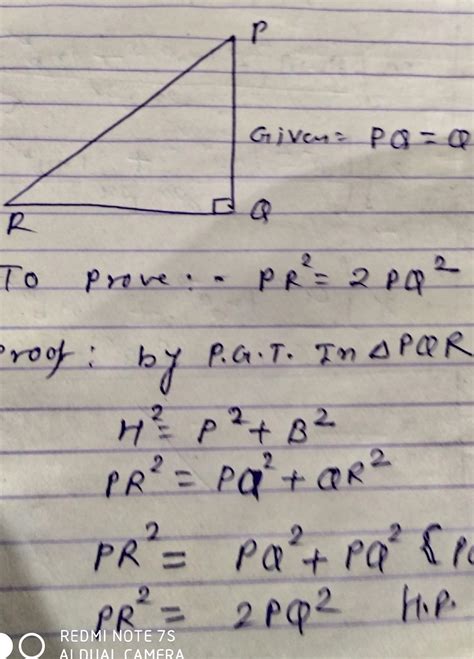 P
Given= PQ = Q
R
Q
To prove:- PR² = 2 PQ²
Proof: by P.G.T. In △PQR
H² = P² + B²
PR² = PQ² + QR²
PR² = PQ² + PQ² {PQ
PR² = 2PQ² H.P.
REDMI NOTE 7S
AI DUAL CAMERA